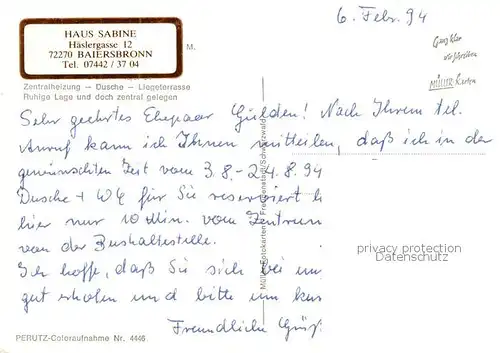 6. Febr. 94
HAUS SABINE
Häslergasse 12
72270 BAIERSBRONN
Tel. 07442 / 37 04
M.
Zentralheizung — Dusche — Liegeterrasse
Ruhige Lage und doch zentral gelegen
Sehr geehrtes Ehepaar Gulden! Nach Ihrem tel.
Anruf kann ich Ihnen mitteilen, daß ich in der
gewünschten Zeit vom 3.8.-24.8.94
Dusche + WC für Sie reserviert h
hier nur 10 Min. vom Zentrum
von der Bushaltestelle.
Ich hoffe, daß Sie sich bei un
gut erholen und bitte um kur
Freundliche Grüß
PERUTZ-Coloraufnahme Nr. 4446
privacy protection
DATENSCHUTZ